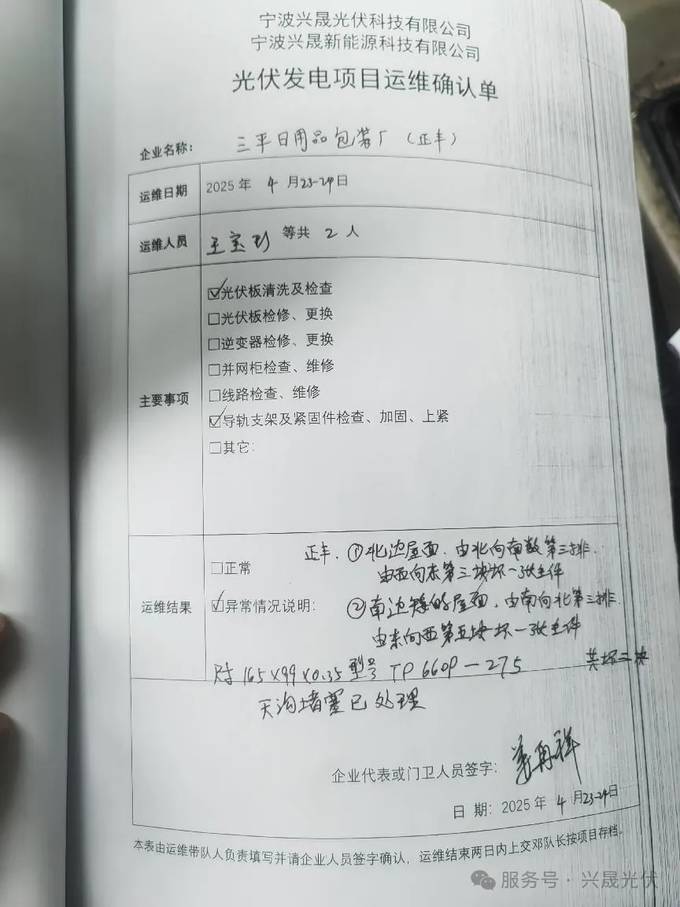 宁波兴晟光伏科技有限公司
宁波兴晟新能源科技有限公司
光伏发电项目运维确认单
企业名称： 三平日用品包装厂（正丰）
运维日期 2025 年 4 月 23-24 日
运维人员 王宝 等共 2 人
主要事项
☑光伏板清洗及检查
□光伏板检修、更换
□逆变器检修、更换
□并网柜检查、维修
□线路检查、维修
☑导轨支架及紧固件检查、加固、上紧
□其它：
运维结果
□正常 正丰.①北边屋面.由北向南数第三排.
由西向东第三块坏一张主件
☑异常情况说明： ②南边矮的屋面,由南向北第三排
由东向西第五块坏一张主件
尺寸 165×99×0.35 型号 TP 660P-275 共坏二块
天沟堵塞已处理
企业代表或门卫人员签字：
日 期：2025 年 4 月 23-24 日
本表由运维带队人负责填写并请企业人员签字确认，运维结束两日内上交邓队长按项目存档。
服务号·兴晟光伏